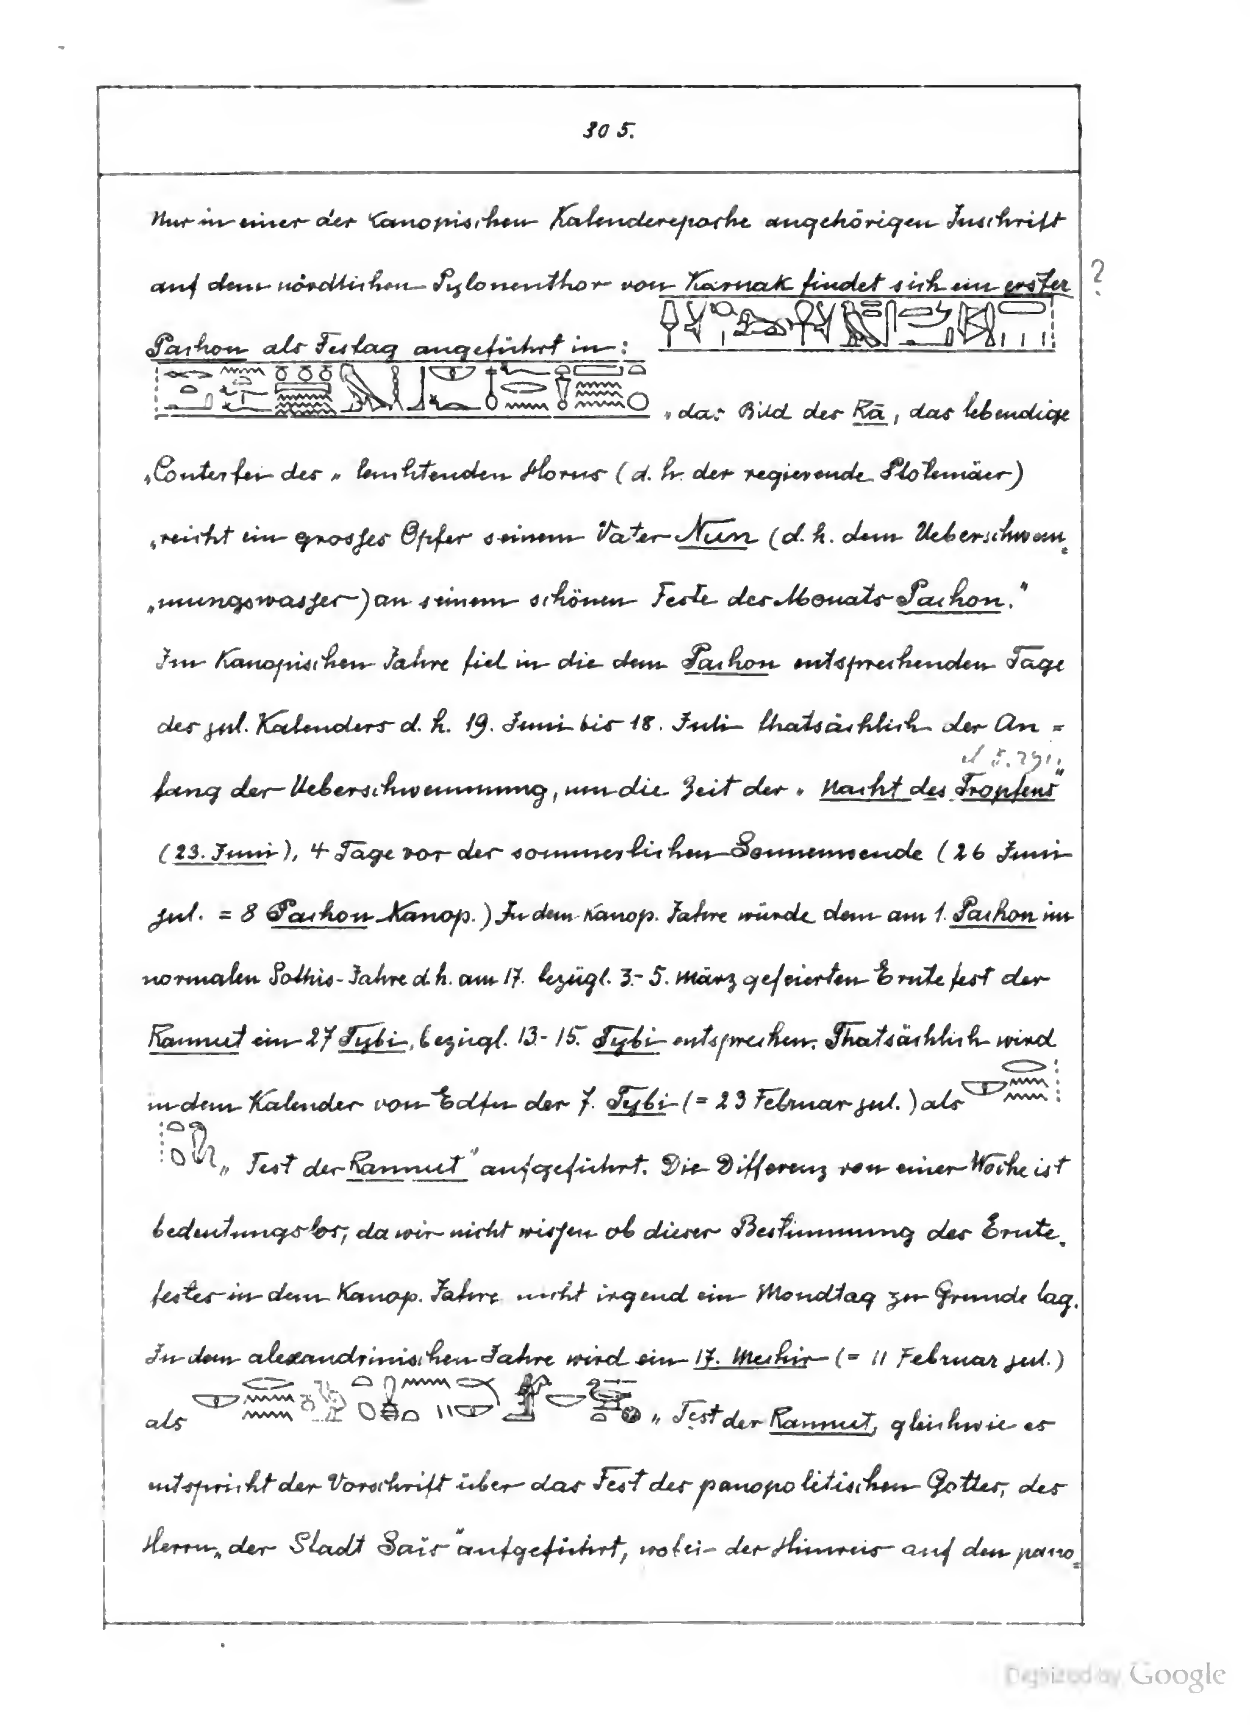 305.
Nur in einer der Kanopischen Kalenderepoche angehörigen Inschrift
auf dem nördlichen Pylonenthor von Karnak findet sich ein erster ?
Pachon als Festag angeführt in:
„das Bild des Rā, das lebendige
„Conterfei des „leuchtenden Horus (d. h. der regierende Ptolemäer)
„reicht ein grosses Opfer seinem Vater Nun (d. h. dem Ueberschwem„
„mungswasser) an seinem schönen Feste des Monats Pachon."
Im Kanopischen Jahre fiel in die dem Pachon entsprechenden Tage
des jul. Kalenders d. h. 19. Juni bis 18. Juli thatsächlich der An =
fang der Ueberschwemmung, um die Zeit der „Nacht des Tropfens"
(23. Juni), 4 Tage vor der sommerlichen Sonnenwende (26 Juni
jul. = 8 Pachon Kanop.) In dem Kanop. Jahre würde dem am 1. Pachon im
normalen Sothis-Jahre d. h. am 17. bezügl. 3.-5. März gefeierten Erntefest der
Rannut ein 27 Tybi, bezügl. 13.-15. Tybi entsprechen. Thatsächlich wird
in dem Kalender von Edfu der 7. Tybi (= 23 Februar jul.) als
„Fest der Rannut" aufgeführt. Die Differenz von einer Woche ist
bedeutungslos, da wir nicht wissen ob dieser Bestimmung des Ernte„
festes in dem Kanop. Jahre nicht irgend ein Mondtag zu Grunde lag.
In dem alexandrinischen Jahre wird ein 17. Mechir (= 11 Februar jul.)
als „Fest der Rannut, gleichwie es
entspricht der Vorschrift über das Fest des panopolitischen Gottes, des
Herrn „der Stadt Saïs" aufgeführt, wobei der Hinweis auf den pano„
Digitized by Google